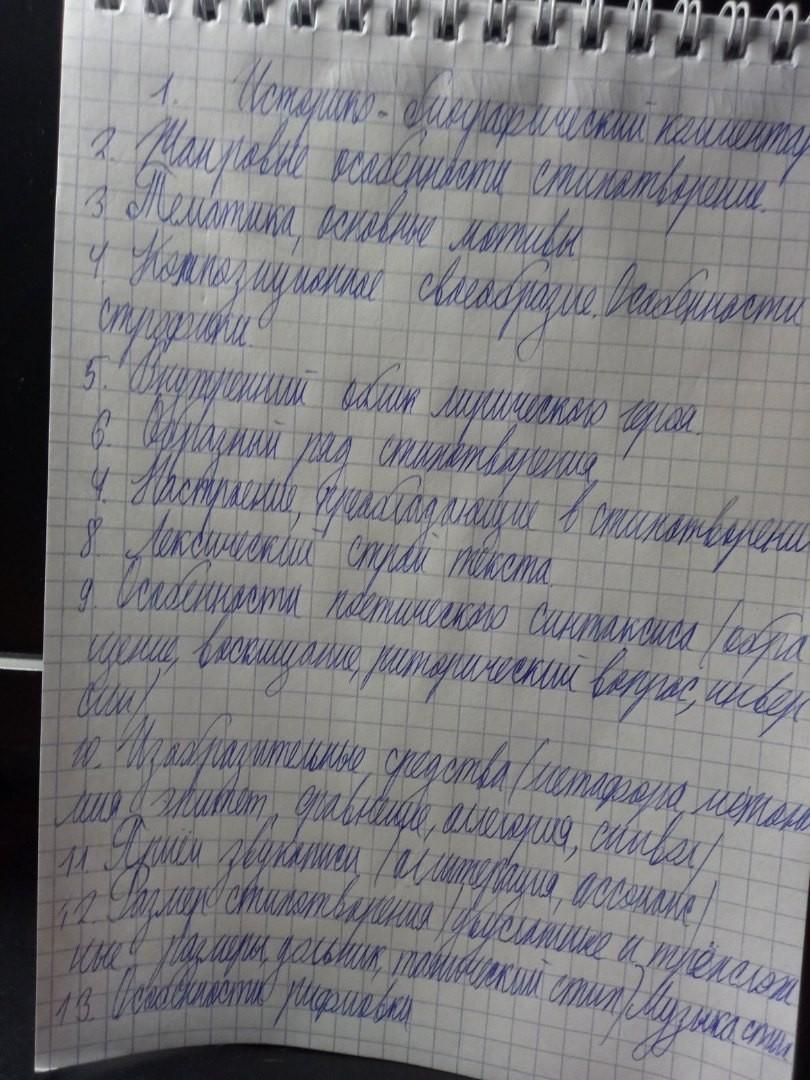 1. Историко-биографический коммента
2. Жанровые особенности стихотворение.
3 Тематика, основные мотивы
4. Композиционное своеобразие. Особенности
строфики.
5. Внутренний облик лирического героя.
6. Образный ряд стихотворения
7. Настроение, преобладающие в стихотворени
8. Лексический строй текста.
9. Особенности поетического синтаксиса (обра
щение, восклицание, риторический вопрос, инвер
сии)
10. Изобразительные средства (метафора, метони
мия эпитет, сравнение, аллегория, символ)
11. Приём звукописи (аллитерация, ассонанс)
12. Размер стихотворения (двусложные и трёхслож
ные размеры, дольник, тонический стих) Музыка. стих
13. Особенности рифмовки